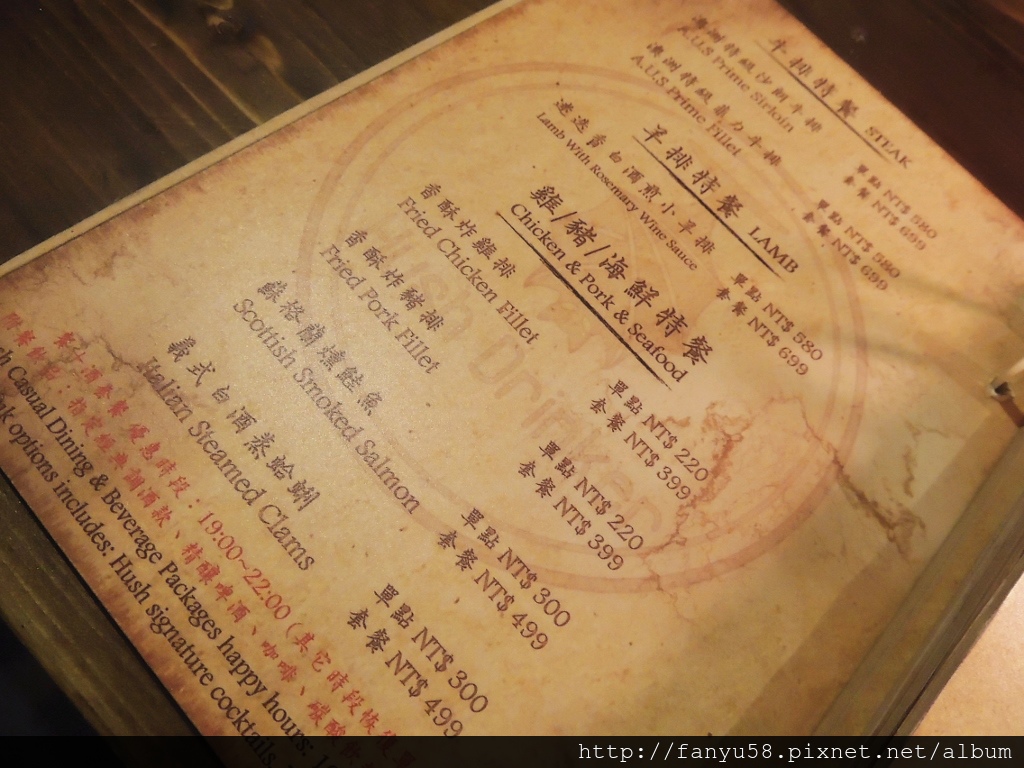 牛排特餐 STEAK
澳洲特級沙朗牛排
A.U.S Prime Sirloin
單點 NT$ 580
套餐 NT$ 699
澳洲特級菲力牛排
A.U.S Prime Fillet
單點 NT$ 580
套餐 NT$ 699
羊排特餐 LAMB
迷迭香白酒煎小羊排
Lamb With Rosemary Wine Sauce
單點 NT$ 580
套餐 NT$ 699
雞/豬/海鮮特餐
Chicken & Pork & Seafood
香酥炸雞排
Fried Chicken Fillet
單點 NT$ 220
套餐 NT$ 399
香酥炸豬排
Fried Pork Fillet
單點 NT$ 220
套餐 NT$ 399
蘇格蘭燻鮭魚
Scottish Smoked Salmon
單點 NT$ 300
套餐 NT$ 499
義式白酒蒸蛤蜊
Italian Steamed Clams
單點 NT$ 300
套餐 NT$ 499
餐+酒套餐 優惠時段：19:00~22:00 (其它時段恢復單
附餐飲品：指定經典調酒款、精釀啤酒、咖啡、碳酸飲
Casual Dining & Beverage Packages happy hours:
options includes: Hush signature cocktails,
Hush Drinker
http://fanyu58.pixnet.net/album